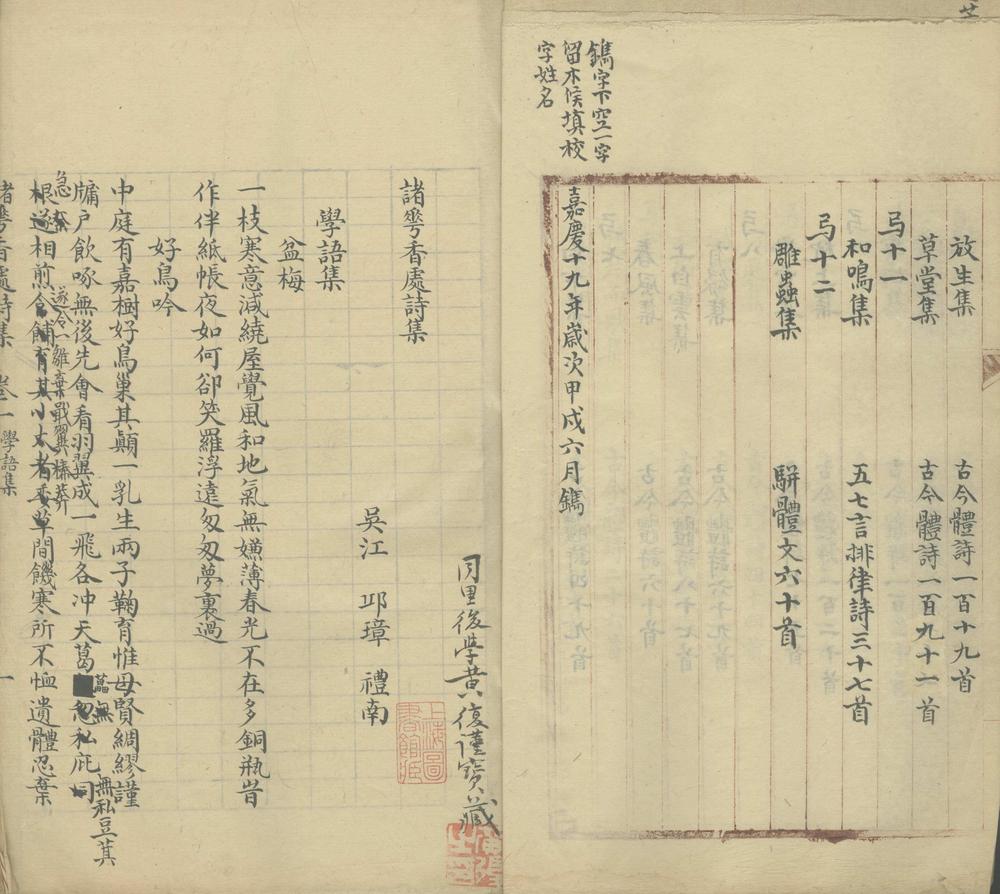 放生集 古今體詩一百十九首
草堂集 古今體詩一百九十一首
弓十一
和鳴集 五七言排律詩三十七首
弓十二
雕蟲集 駢體文六十首
嘉慶十九年歲次甲戌六月鐫
鐫字下空一字
留木候填校
字姓名
同里後學黃復謹寶藏
諸雩香處詩集
吳江 邛璋 禮南
學語集
盆梅
一枝寒意減繞屋覺風和地氣無嫌薄春光不在多銅瓶昔
作伴紙帳夜如何卻笑羅浮遠匆匆夢裏過
好鳥吟
中庭有嘉樹好鳥巢其顛一乳生兩子鞠育惟母賢綢繆謹
牖戶飲啄無後先會看羽翼成一飛各冲天葛
藟無
忽私庇同
無私豆萁
根遂相煎
急
含餔育其小大者委草間饑寒所不恤遺體忍棄
遂令一雛棄戢翼榛莽
諸雩香處詩集 卷一 學語集 一
上海圖書館藏